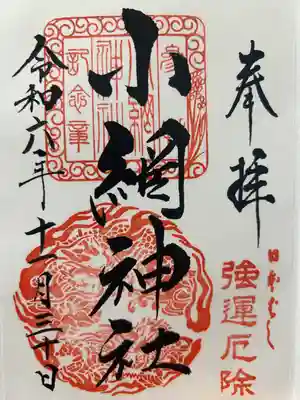 奉拝
日本ばし
強運厄除
小網神社
令和六年十一月三十日